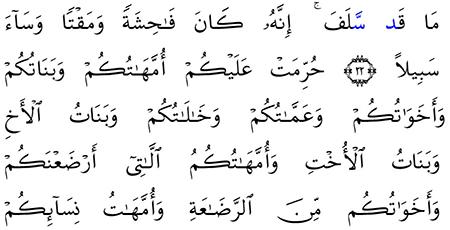 مَا قَد سَّلَفَ ۚ إِنَّهُۥ كَانَ فَـٰحِشَةً وَمَقْتًا وَسَآءَ
سَبِيلاً ﴿٢٢﴾ حُرِّمَتْ عَلَيْكُمْ أُمَّهَـٰتُكُمْ وَبَنَاتُكُمْ
وَأَخَوَٰتُكُمْ وَعَمَّـٰتُكُمْ وَخَـٰلَـٰتُكُمْ وَبَنَاتُ ٱلْأَخِ
وَبَنَاتُ ٱلْأُخْتِ وَأُمَّهَـٰتُكُمُ ٱلَّـٰتِىٓ أَرْضَعْنَكُمْ
وَأَخَوَٰتُكُم مِّنَ ٱلرَّضَـٰعَةِ وَأُمَّهَـٰتُ نِسَآئِكُمْ